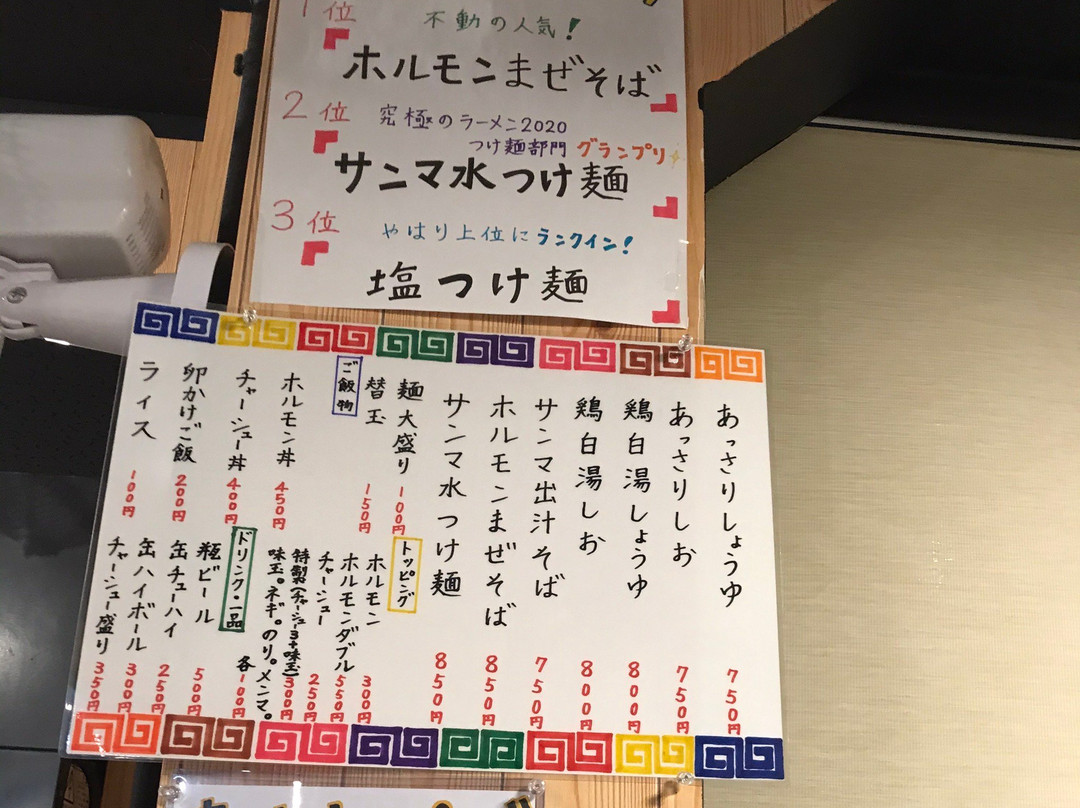 1位
不動の人気!
ホルモンまぜそば
2位
究極のラーメン2020
つけ麺部門 グランプリ
サンマ水つけ麺
3位
やはり上位にランクイン!
塩つけ麺
あっさりしょうゆ 750円
あっさりしお 750円
鶏白湯しょうゆ 800円
鶏白湯しお 800円
サンマ出汁そば 750円
ホルモンまぜそば 850円
サンマ水つけ麺 850円
麺大盛り 100円
替玉 150円
ご飯物
ホルモン丼 450円
チャーシュー丼 400円
卵かけご飯 200円
ライス 100円
トッピング
ホルモン 300円
ホルモンダブル 550円
チャーシュー 250円
特製(チャーシュー3+味玉) 300円
味玉。ネギ。のり。メンマ。各100円
ドリンク・一品
瓶ビール 500円
缶チューハイ 250円
缶ハイボール 300円
チャーシュー盛り 350円